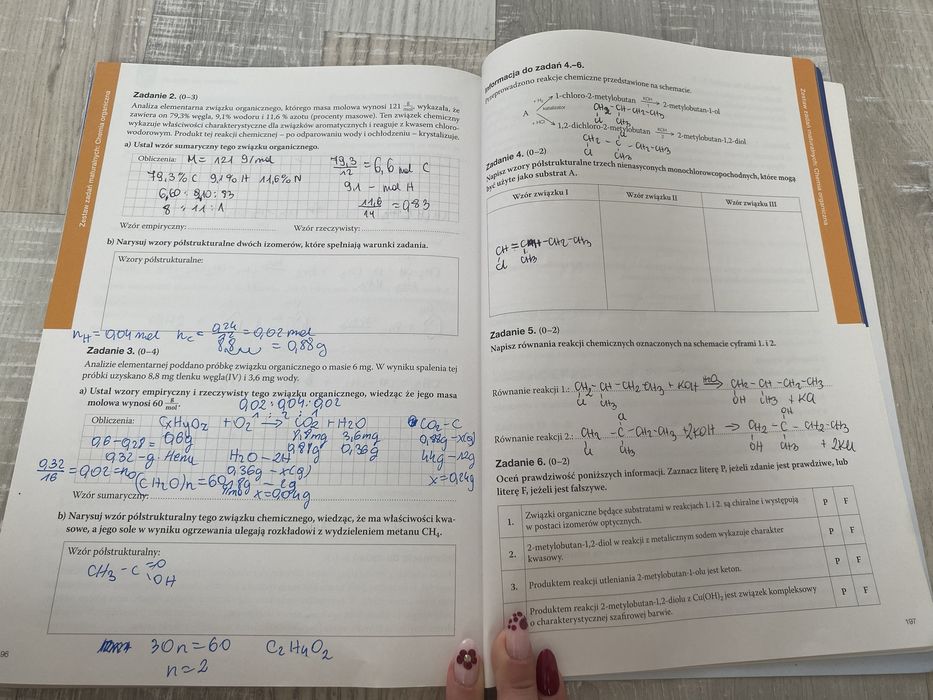 Zestaw zadań maturalnych: Chemia organiczna
Zadanie 2. (0–3)
Analiza elementarna związku organicznego, którego masa molowa wynosi 121 g/mol, wykazała, że
zawiera on 79,3% węgla, 9,1% wodoru i 11,6 % azotu (procenty masowe). Ten związek chemiczny
wykazuje właściwości charakterystyczne dla związków aromatycznych i reaguje z kwasem chloro-
wodorowym. Produkt tej reakcji chemicznej – po odparowaniu wody i ochłodzeniu – krystalizuje.
a) Ustal wzór sumaryczny tego związku organicznego.
Obliczenia: M = 121 g/mol
79,3% C 9,1% H 11,6% N
8 : 11 : 1
79,3/12 = 6,6 mol C
9,1 – mol H
11,6/14 = 0,83
Wzór empiryczny: Wzór rzeczywisty:
b) Narysuj wzory półstrukturalne dwóch izomerów, które spełniają warunki zadania.
Wzory półstrukturalne:
nH = 0,04 mol nC = 0,24/12 = 0,02 mol
= 0,88 g
Zadanie 3. (0–4)
Analizie elementarnej poddano próbkę związku organicznego o masie 6 mg. W wyniku spalenia tej
próbki uzyskano 8,8 mg tlenku węgla(IV) i 3,6 mg wody.
a) Ustal wzory empiryczny i rzeczywisty tego związku organicznego, wiedząc że jego masa
molowa wynosi 60 g/mol.
0,02 : 0,04 : 0,02
1 : 2 : 1
Obliczenia: CxHyOz + O2 → CO2 + H2O
8,8mg 3,6mg
0,6g 0,88g 0,36g
0,6 – 0,28 =
0,32 – g tlenu
0,32/16 = 0,02 = nO
H2O – 2H
0,36g – x(g)
18g – 2g
x = 0,04g
(CH2O)n = 60 g/mol
CO2 – C
0,88g – x(g)
44g – 12g
x = 0,24g
Wzór sumaryczny:
b) Narysuj wzór półstrukturalny tego związku chemicznego, wiedząc, że ma właściwości kwa-
sowe, a jego sole w wyniku ogrzewania ulegają rozkładowi z wydzieleniem metanu CH4.
Wzór półstrukturalny:
CH3 – C =O
OH
30n = 60 C2H4O2
n = 2
96
Informacja do zadań 4.–6.
Przeprowadzono reakcje chemiczne przedstawione na schemacie.
1-chloro-2-metylobutan KOH 1 2-metylobutan-1-ol
A katalizator
CH2 – CH – CH2 – CH3
Cl CH3
1,2-dichloro-2-metylobutan KOH 2 2-metylobutan-1,2-diol
Cl
CH2 – C – CH2 – CH3
Cl CH3
Zadanie 4. (0–2)
Napisz wzory półstrukturalne trzech nienasyconych monochlorowcopochodnych, które mogą
być użyte jako substrat A.
Wzór związku I Wzór związku II Wzór związku III
CH = C – CH2 – CH3
Cl CH3
Zadanie 5. (0–2)
Napisz równania reakcji chemicznych oznaczonych na schemacie cyframi 1. i 2.
Równanie reakcji 1.: CH2 – CH – CH2 – CH3 + KOH H2O → CH2 – CH – CH2 – CH3
Cl CH3 OH CH3 + KCl
Cl OH
Równanie reakcji 2.: CH2 – C – CH2 – CH3 + 2KOH → CH2 – C – CH2 – CH3
Cl CH3 OH CH3 + 2KCl
Zadanie 6. (0–2)
Oceń prawdziwość poniższych informacji. Zaznacz literę P, jeżeli zdanie jest prawdziwe, lub
literę F, jeżeli jest fałszywe.
1. Związki organiczne będące substratami w reakcjach 1. i 2. są chiralne i występują
w postaci izomerów optycznych. P F
2. 2-metylobutan-1,2-diol w reakcji z metalicznym sodem wykazuje charakter
kwasowy. P F
3. Produktem reakcji utleniania 2-metylobutan-1-olu jest keton. P F
Produktem reakcji 2-metylobutan-1,2-diolu z Cu(OH)2 jest związek kompleksowy
o charakterystycznej szafirowej barwie. P F
197
Zestaw zadań maturalnych: Chemia organiczna